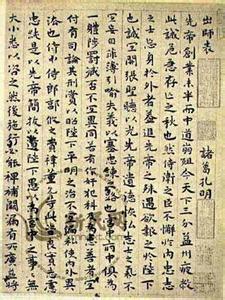 出師表
諸葛孔明
先帝創業未半而中道崩殂今天下三分益州疲敝
此誠危急存亡之秋也然侍衛之臣不懈於內忠志
之士忘身於外者蓋追先帝之殊遇欲報之於陛下
也誠宜開張聖聽以光先帝遺德恢志士之氣不
宜妄自菲薄引喻失義以塞忠諫之路也宮中府中俱為
一體陟罰臧否不宜異同若有作奸犯科及為忠善者宜
付有司論其刑賞以昭陛下平明之治不宜偏私使內外異
法也侍中侍郎郭攸之費禕董允等此皆良實志慮
忠純是以先帝簡拔以遺陛下愚以為宮中之事事無
大小悉以咨之然後施行必能裨補闕漏有所廣益將